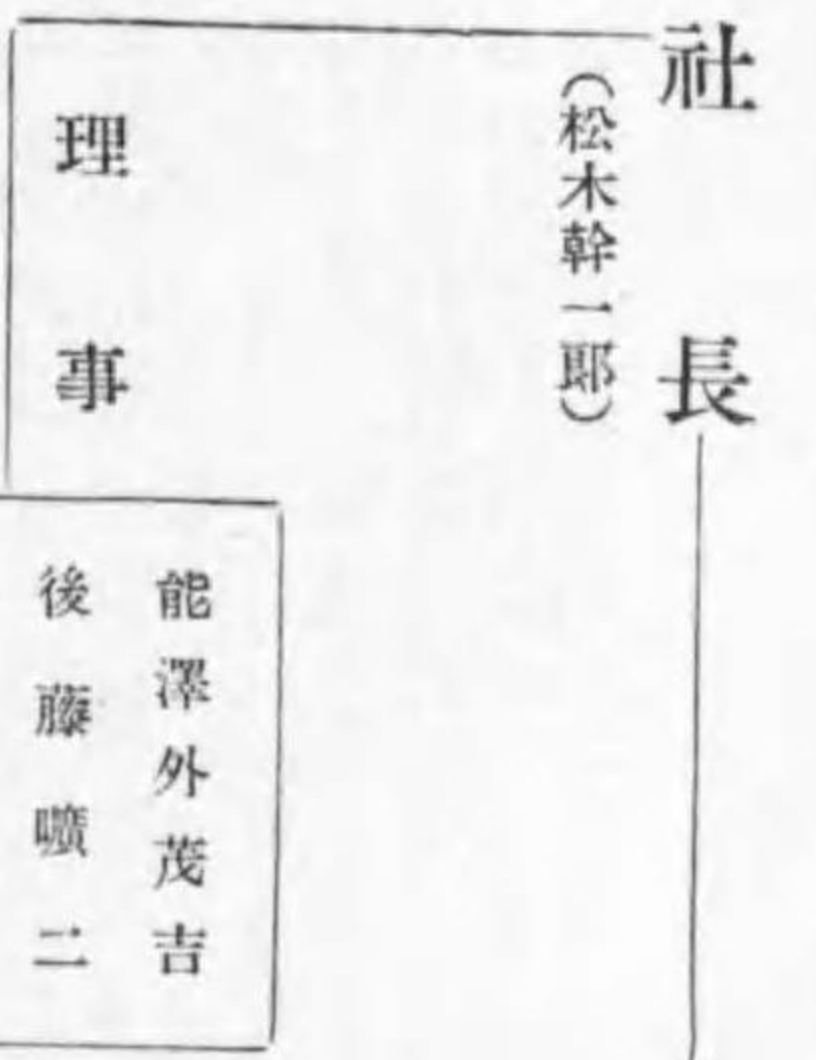 社長
(松木幹一郎)
理事
能澤外茂吉
後藤曠二